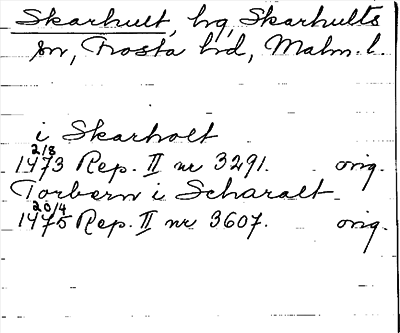 Skarhult, hg, Skarhults
sn, Frosta hd, Malm. l.
i Skarholt
21/8
1473 Rep. II nr 3291. orig.
Torbern i Scharalt
20/4
1475 Rep. II nr 3607. orig.